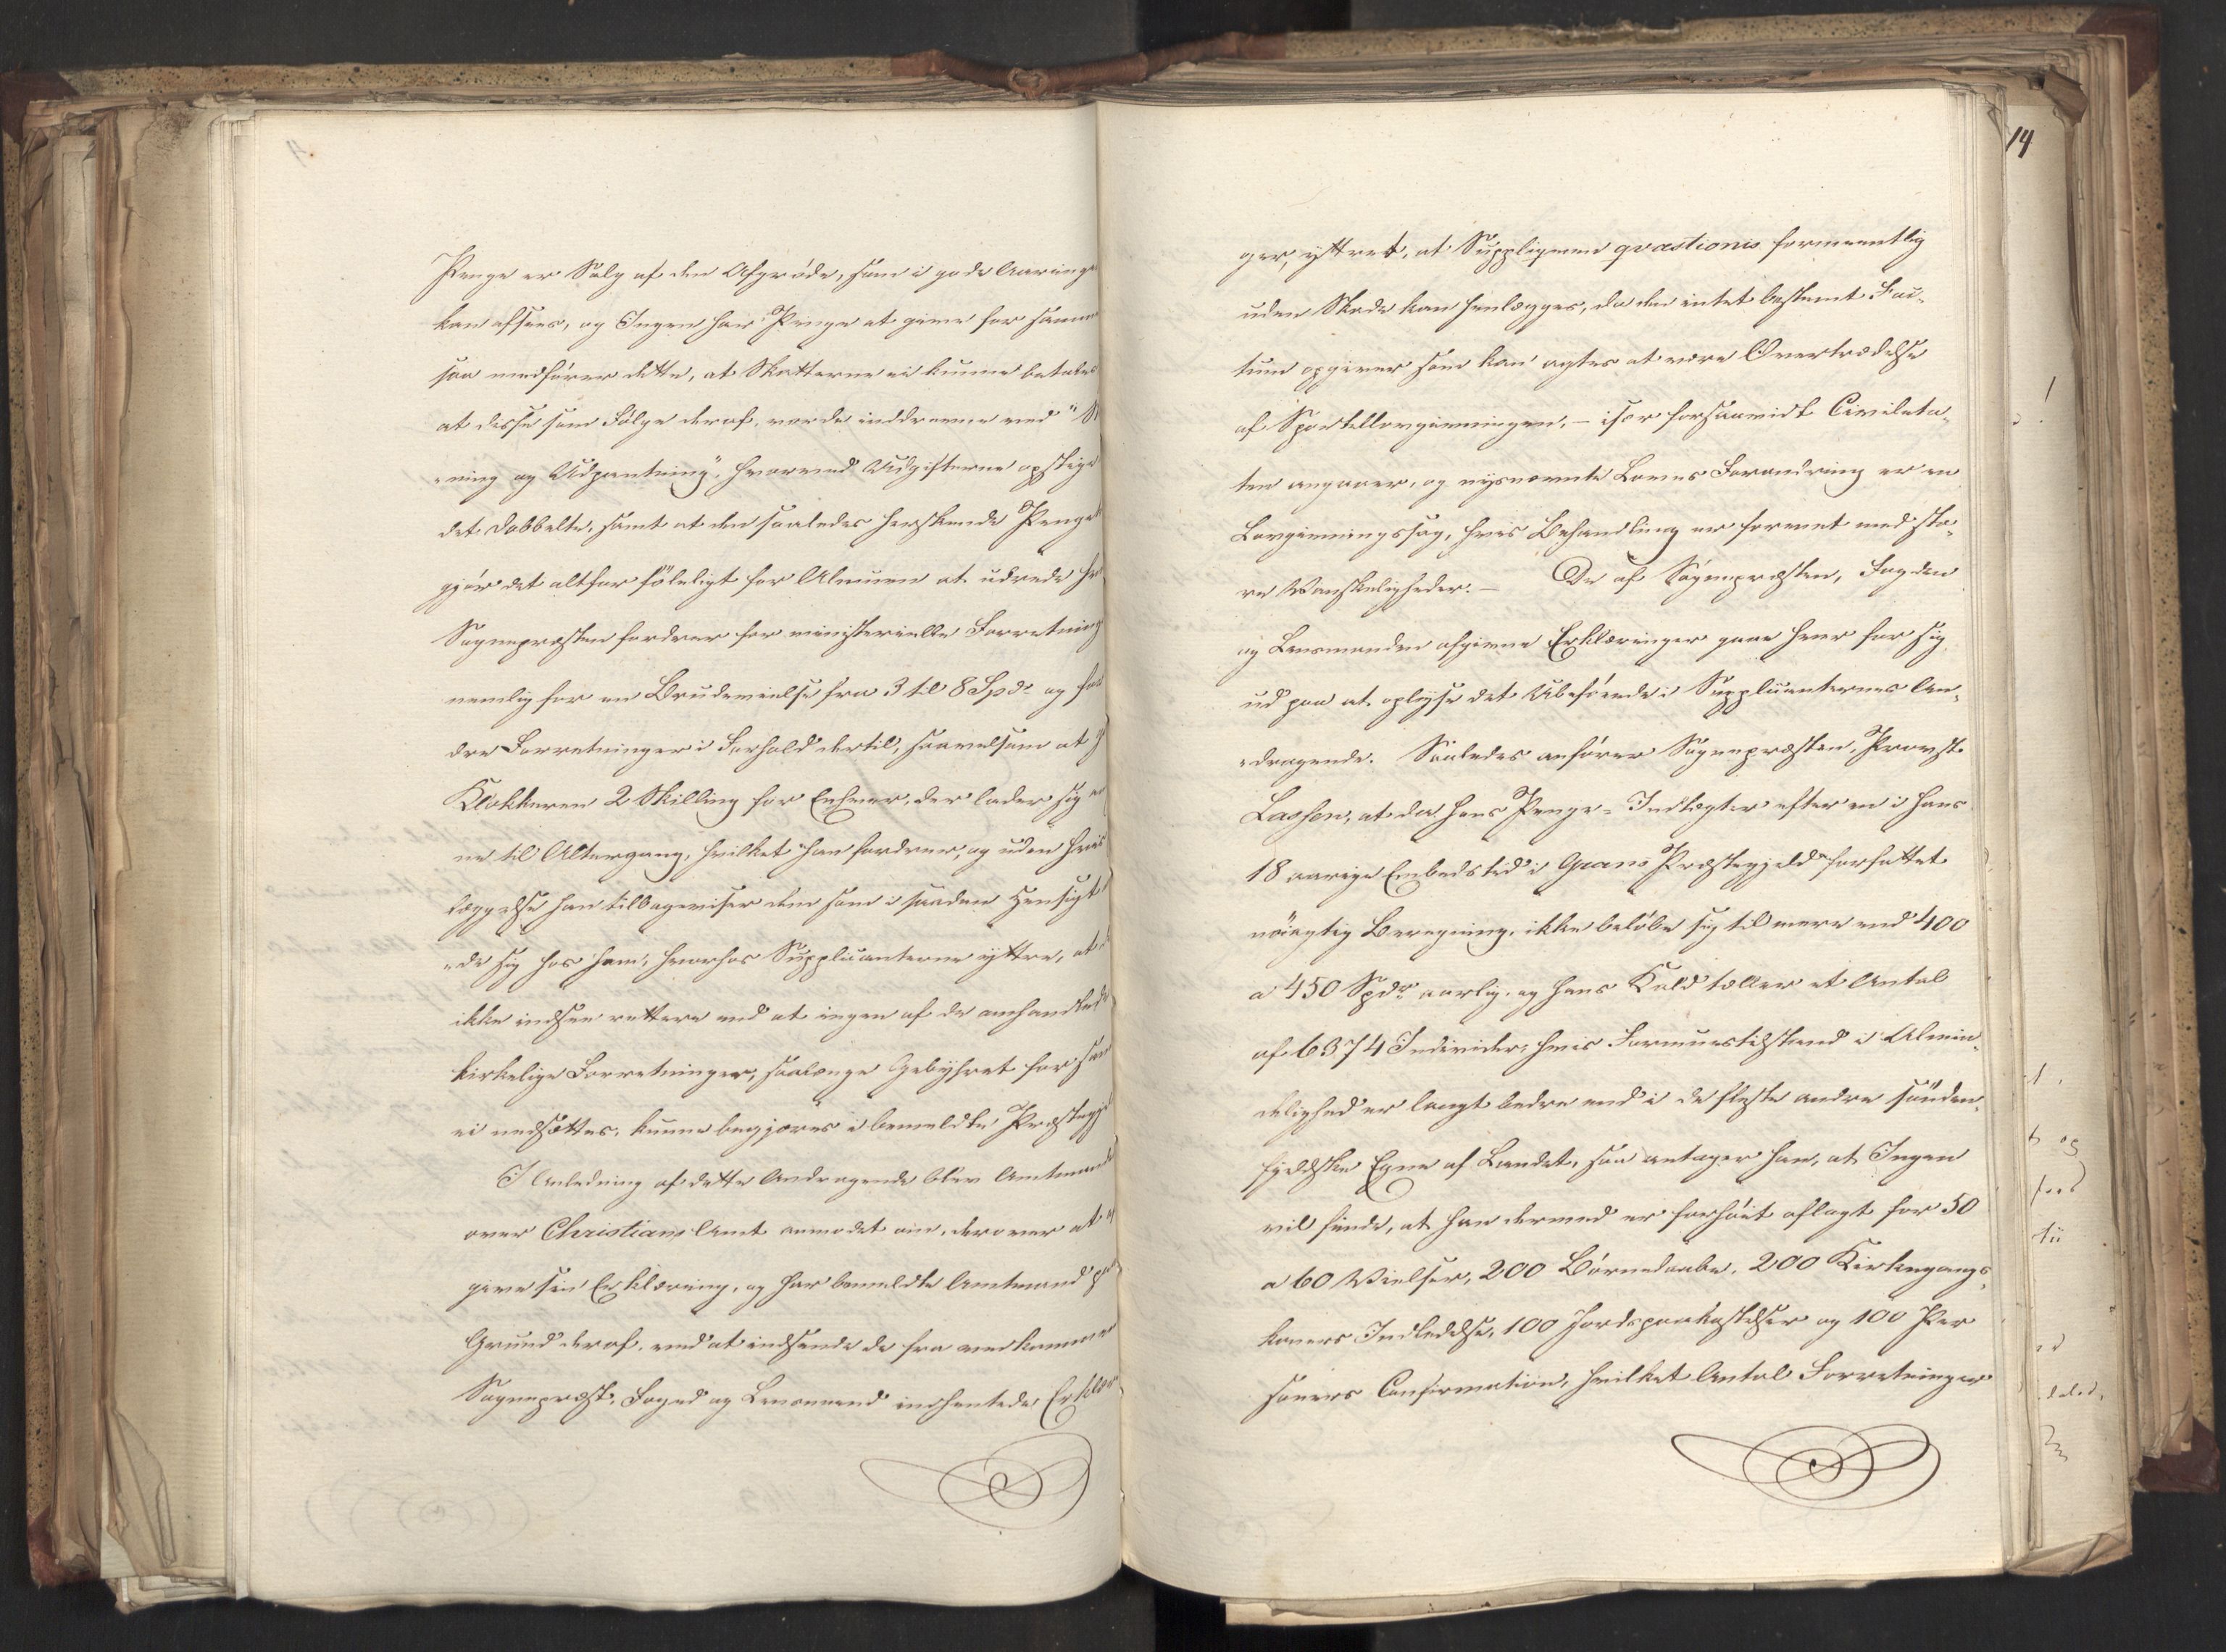 Penge er Salg af den Afgrøde, som i gode Aaringe
kan afsees, og Ingen har Penge at give for samme
saa medfører dette, at Skatterne ei kunne betales
at disse som Følge deraf, vorde inddrevne ved "
"ning og Udpantning", hvorved Udgifterne opstige
det dobbelte, samt at den saaledes herskende Penge
gjør det altfor føleligt for Almuen at udrede h
Sognepræsten fordrer for ministerielle Forretning
nemlig for en Brudevielse fra 3 til 8 Spdr og for
dre Forretninger i Forhold dertil, saavelsom at
Klokkeren 2 Skilling for Enhver, der lader sig
ne til Altergang, hvilket han fordrer, og uden hvis
læggelse han tilbageviser dem som i saadan Hensigt
"de sig hos ham; hvorhos Supplicanterne yttre, at
ikke indsee rettere end at ingen af de omhandlede
kirkelige Forretninger, saalænge Gebyhret for sam
ei nedsættes, kunne begjæres i bemeldte Præstegj
I Anledning af dette Andragende blev Amtmand
over Christians Amt anmodet om, derover at
give sin Erklæring, og har bemeldte Amtmand
Grund deraf, ved at indsende de fra vedkomme
Sognepræst, Foged og Lensmand indhentede Erklær
14
ger, yttret, at Suppliquen qvæstionis formeentlig
uden Skade kan henlægges, da den intet bestemt Fac-
tum opgiver som kan agtes at være Overtrædelse
af Sportellovgivningen, – især forsaavidt Civileta-
ten angaaer, og nysnævnte Lovs Forandring er en
Lovgivningssag, hvis Behandling er forenet med stø-
re Vanskeligheder. – De af Sognepræsten, Fogden
og Lensmanden afgivne Erklæringer gaae hver for sig
ud paa at oplyse det Ubeføiede i Supplicanternes An-
"dragende. Saaledes anfører Sognepræsten, Provst
Lassen, at da hans Penge-Indtægter efter en i hans
18 aarige Embedstid i Grans Præstegjeld forfattet
nøiagtig Beregning, ikke beløbe sig til mere end 400
a 450 Spdr aarlig, og hans Kald tæller et Antal
af 6374 Individer, hvis Formuestilstand i Almin-
delighed er langt bedre end i de fleste andre sønden-
fjeldske Egne af Landet, saa antager han, at Ingen
vil finde, at han dermed er forhøit aflagt for 50
a 60 Vielser, 200 Børnedaabe, 200 Kirkegangs-
koners Indledelse, 100 Jordspaakastelser og 100 Per
soners Confirmation, hvilket Antal Forretninger